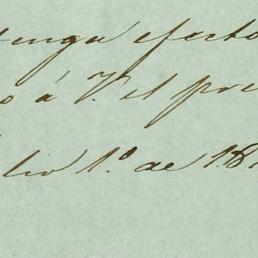 tenga efecto
o á V. el pre
lio 1.º de 18